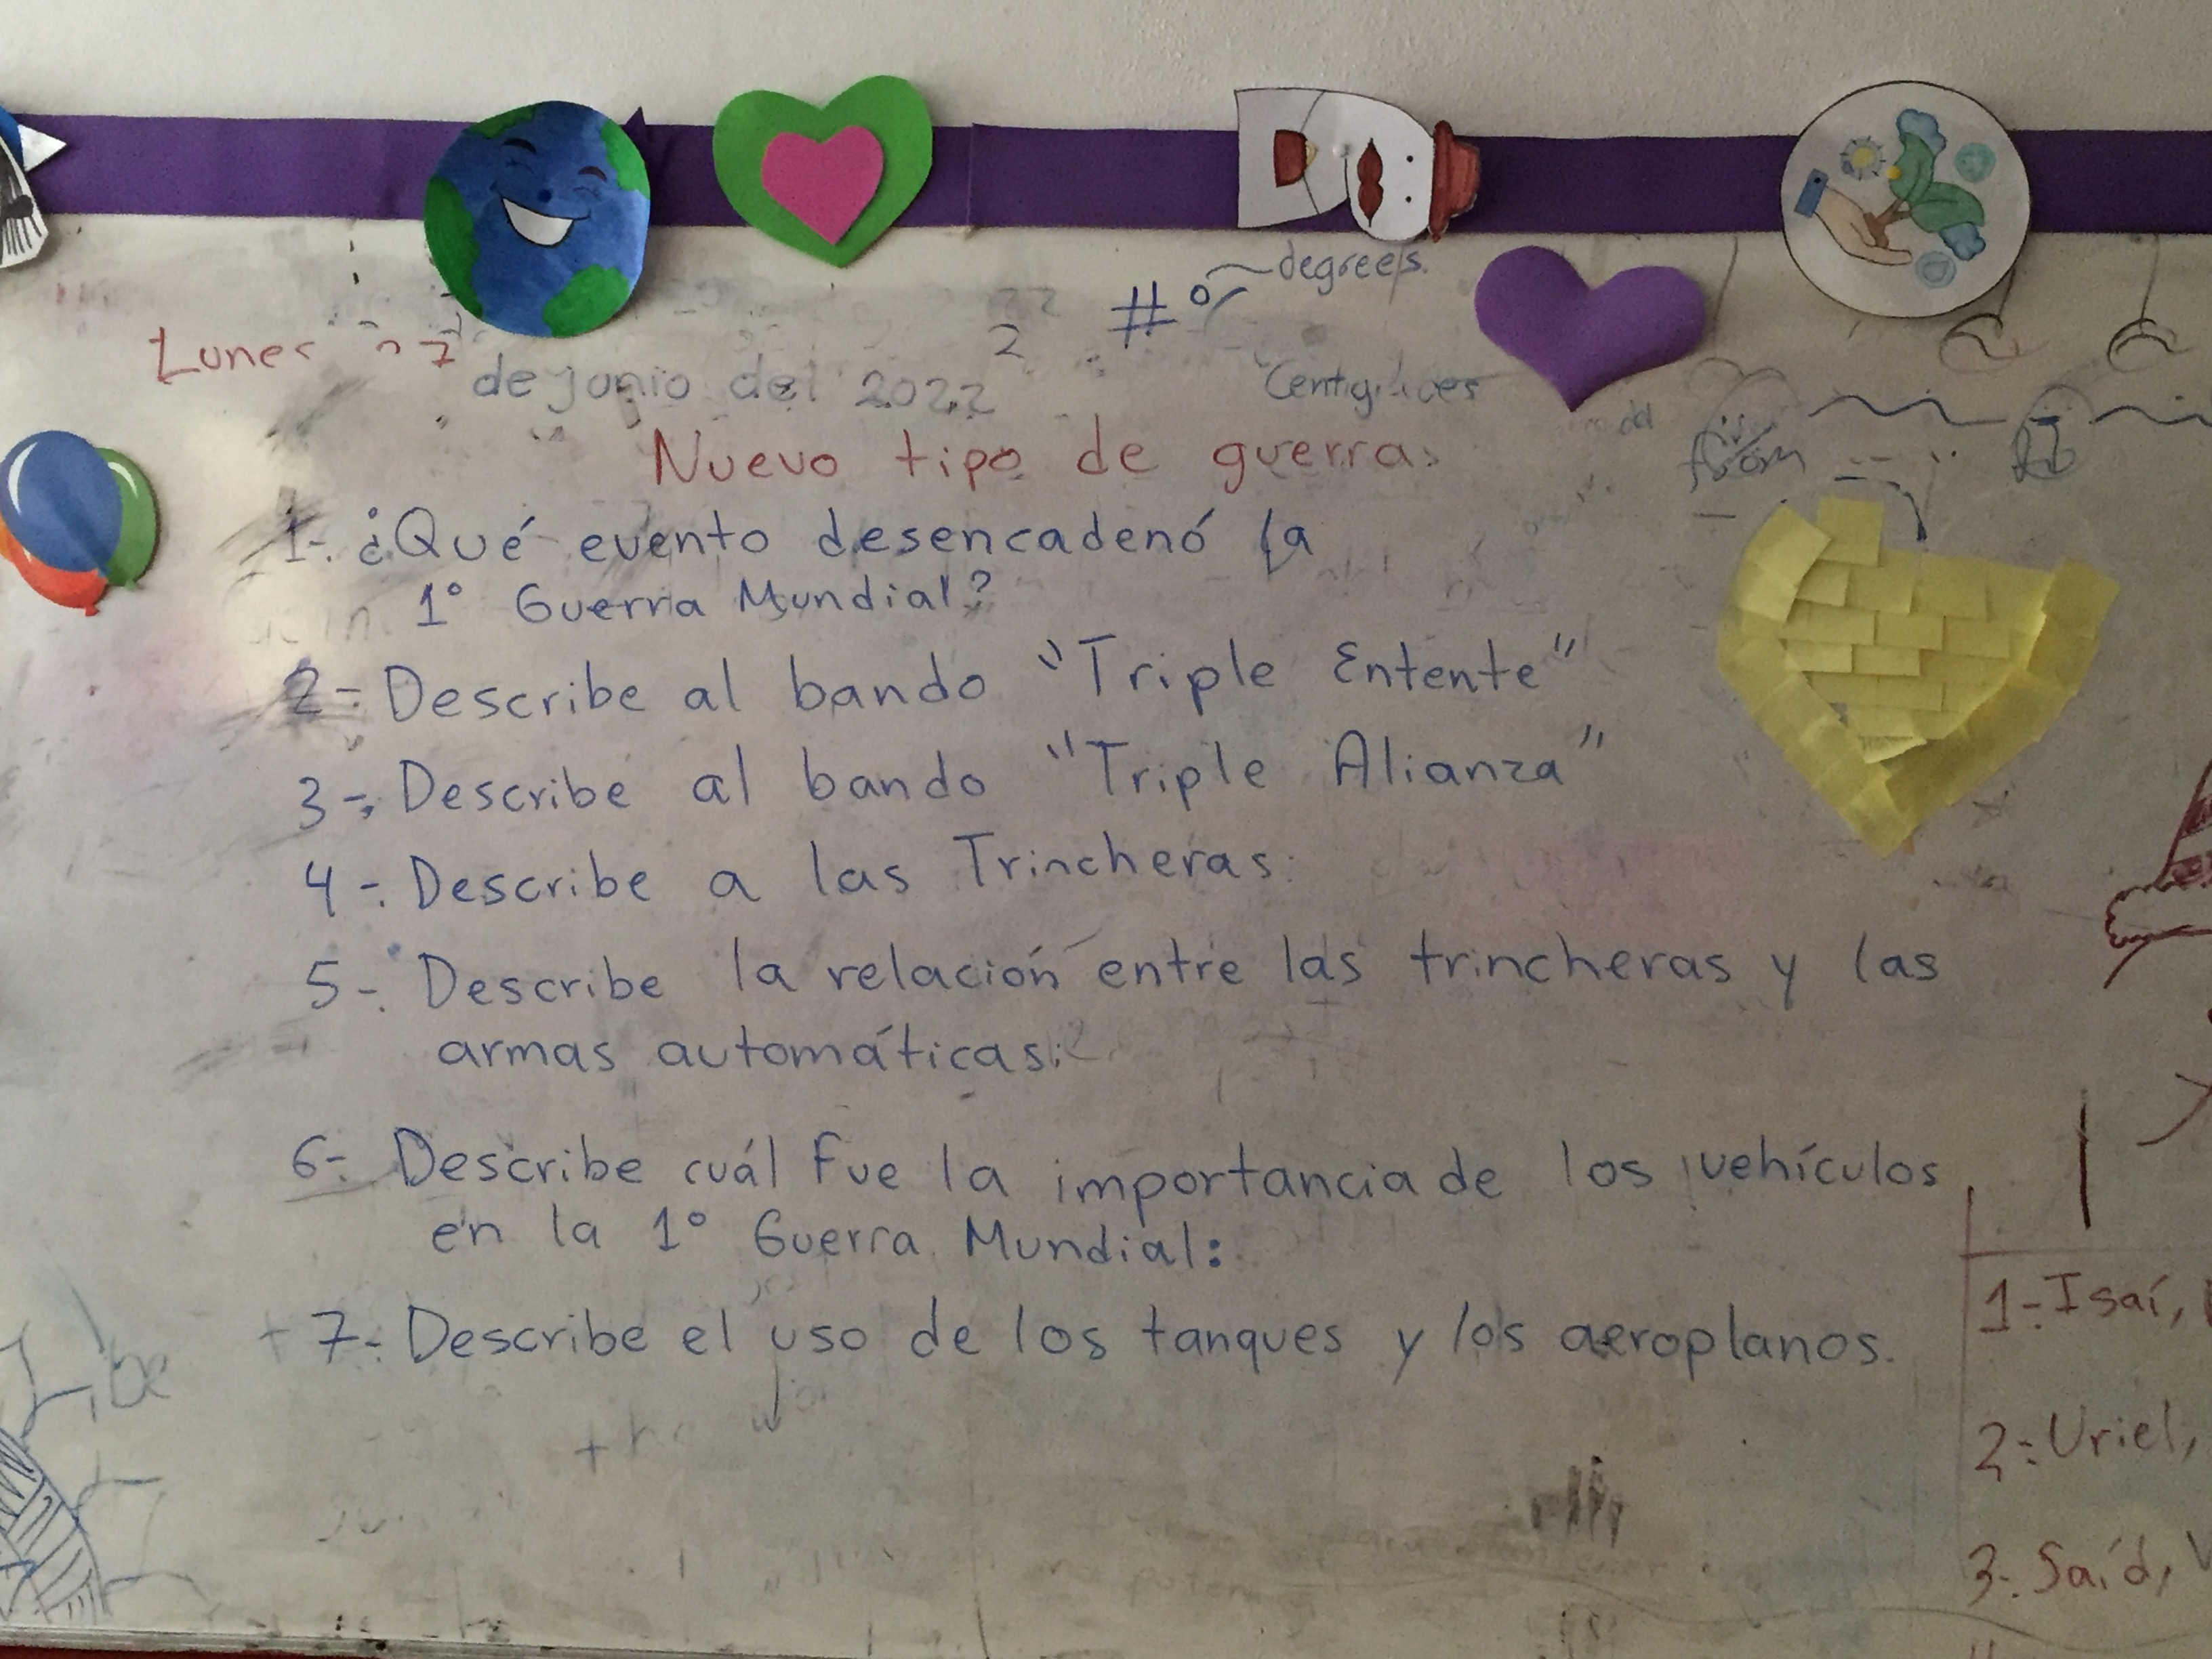 degrees.
#°
2
Lunes 27
de junio del 2022
Nuevo tipo de guerra:
from
1-. ¿Qué evento desencadenó la
1° Guerra Mundial?
2-. Describe al bando "Triple Entente"
3-. Describe al bando "Triple Alianza"
4-. Describe a las Trincheras:
5-. Describe la relación entre las trincheras y las
armas automáticas:
6-. Describe cuál fue la importancia de los vehículos
en la 1° Guerra Mundial:
7-. Describe el uso de los tanques y los aeroplanos.
1-. Isaí,
2-. Uriel,
3-. Saíd,